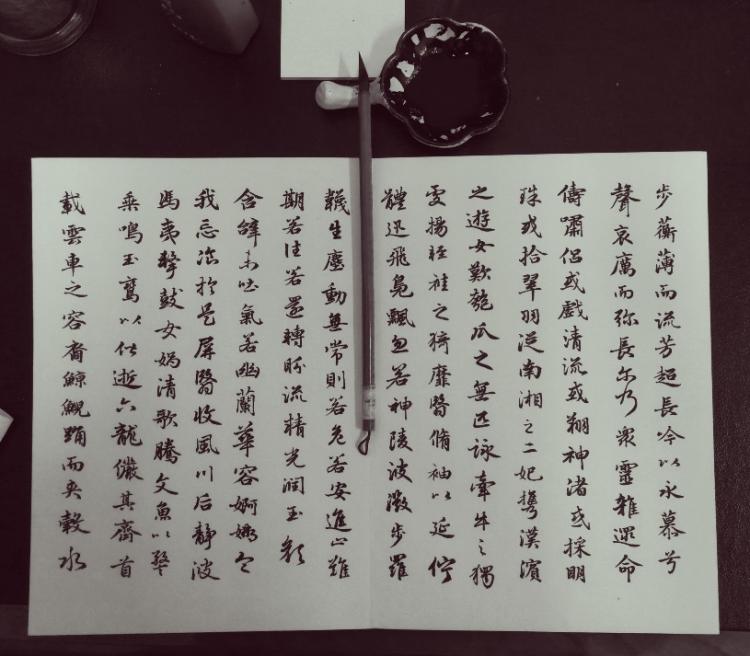 步蘅薄而流芳超長吟以永慕兮
聲哀厲而弥長尓乃衆靈雜遝命
儔嘯侶或戲清流或翔神渚或採明
珠或拾翠羽從南湘之二妃攜漢濱
之遊女歎匏瓜之無匹詠牽牛之獨
處揚輕袿之猗靡翳脩袖以延佇
體迅飛鳧飄忽若神陵波微步羅
韈生塵動無常則若危若安進止難
期若往若還轉眄流精光潤玉顏
含辭未吐氣若幽蘭華容婀娜令
我忘湌於是屏翳收風川后靜波
馮夷擊鼓女媧清歌騰文魚以警
乘鳴玉鸞以偕逝六龍儼其齊首
載雲車之容裔鯨鯢踴而夾轂水